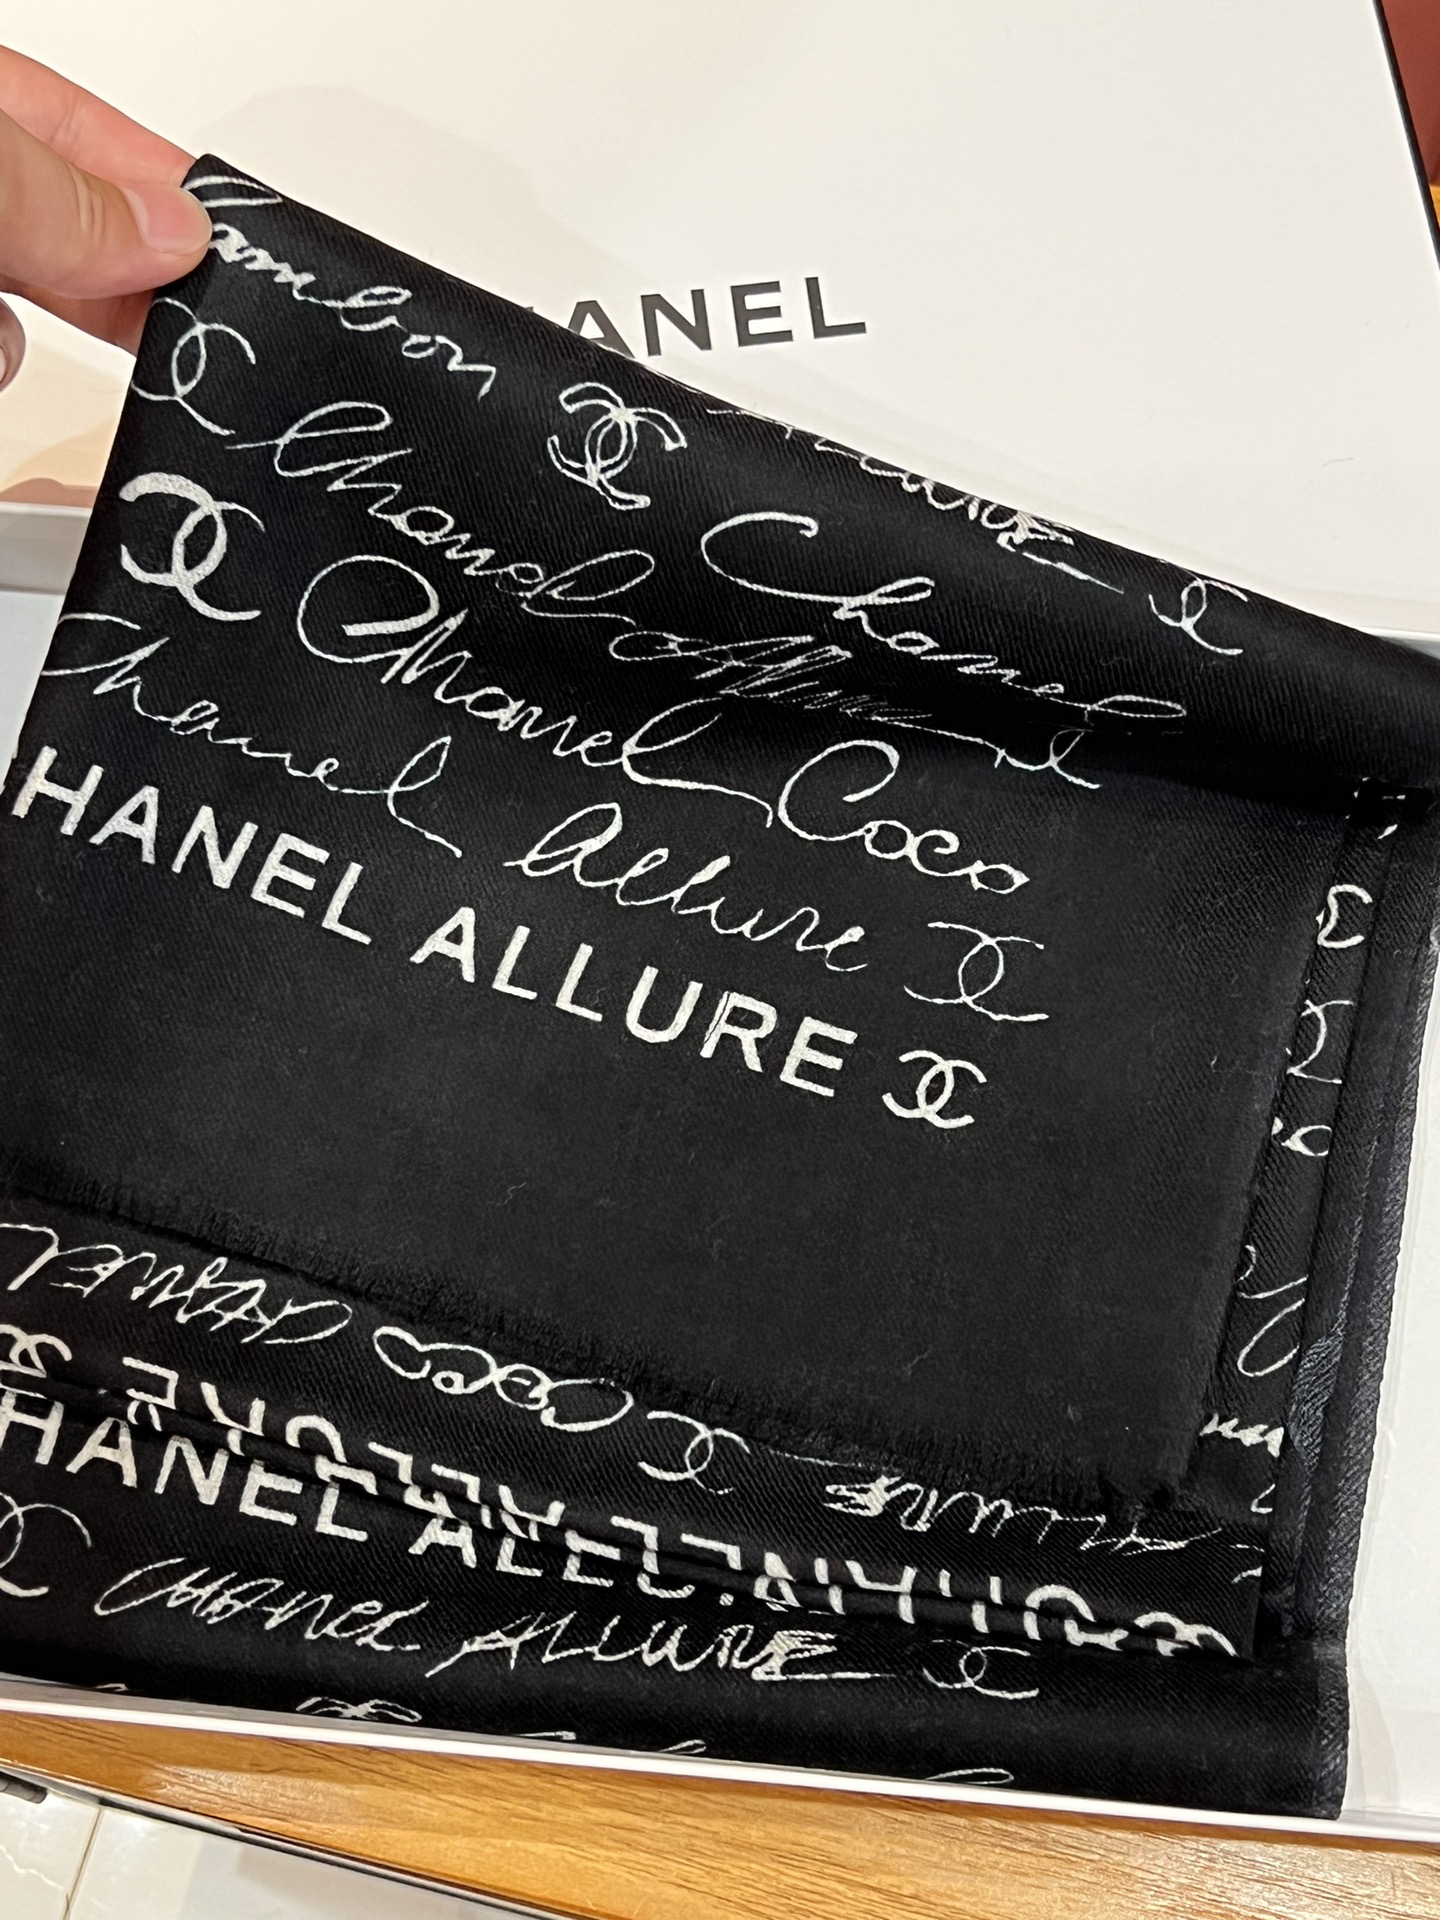 ANEL
ambon
Chanel
Chanel
Allure
Chanel Coco
Chanel Allure
HANEL ALLURE
CHANEL
COCO
ALLURE
HANEL ALLURE
CHANEL ALLURE
CHANEL ALLURE